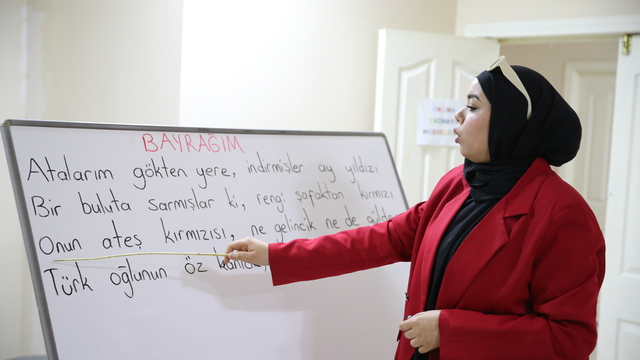 BAYRAĞIM
Atalarım gökten yere, indirmişler ay yıldızı
Bir buluta sarmışlar ki, rengi şafaktan kırmızı
Onun ateş kırmızısı, ne gelincik ne de gülde
Türk oğlunun öz